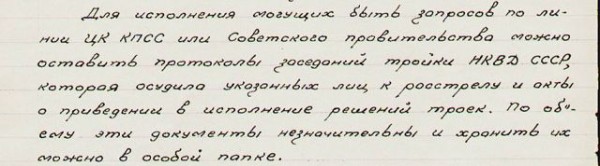 Для исполнения могущих быть запросов по ли-
нии ЦК КПСС или Советского правительства можно
оставить протоколы заседаний тройки НКВД СССР,
которая осудила указанных лиц к расстрелу и акты
о приведении в исполнение решений троек. По объ-
ему эти документы незначительны и хранить их
можно в особой папке.